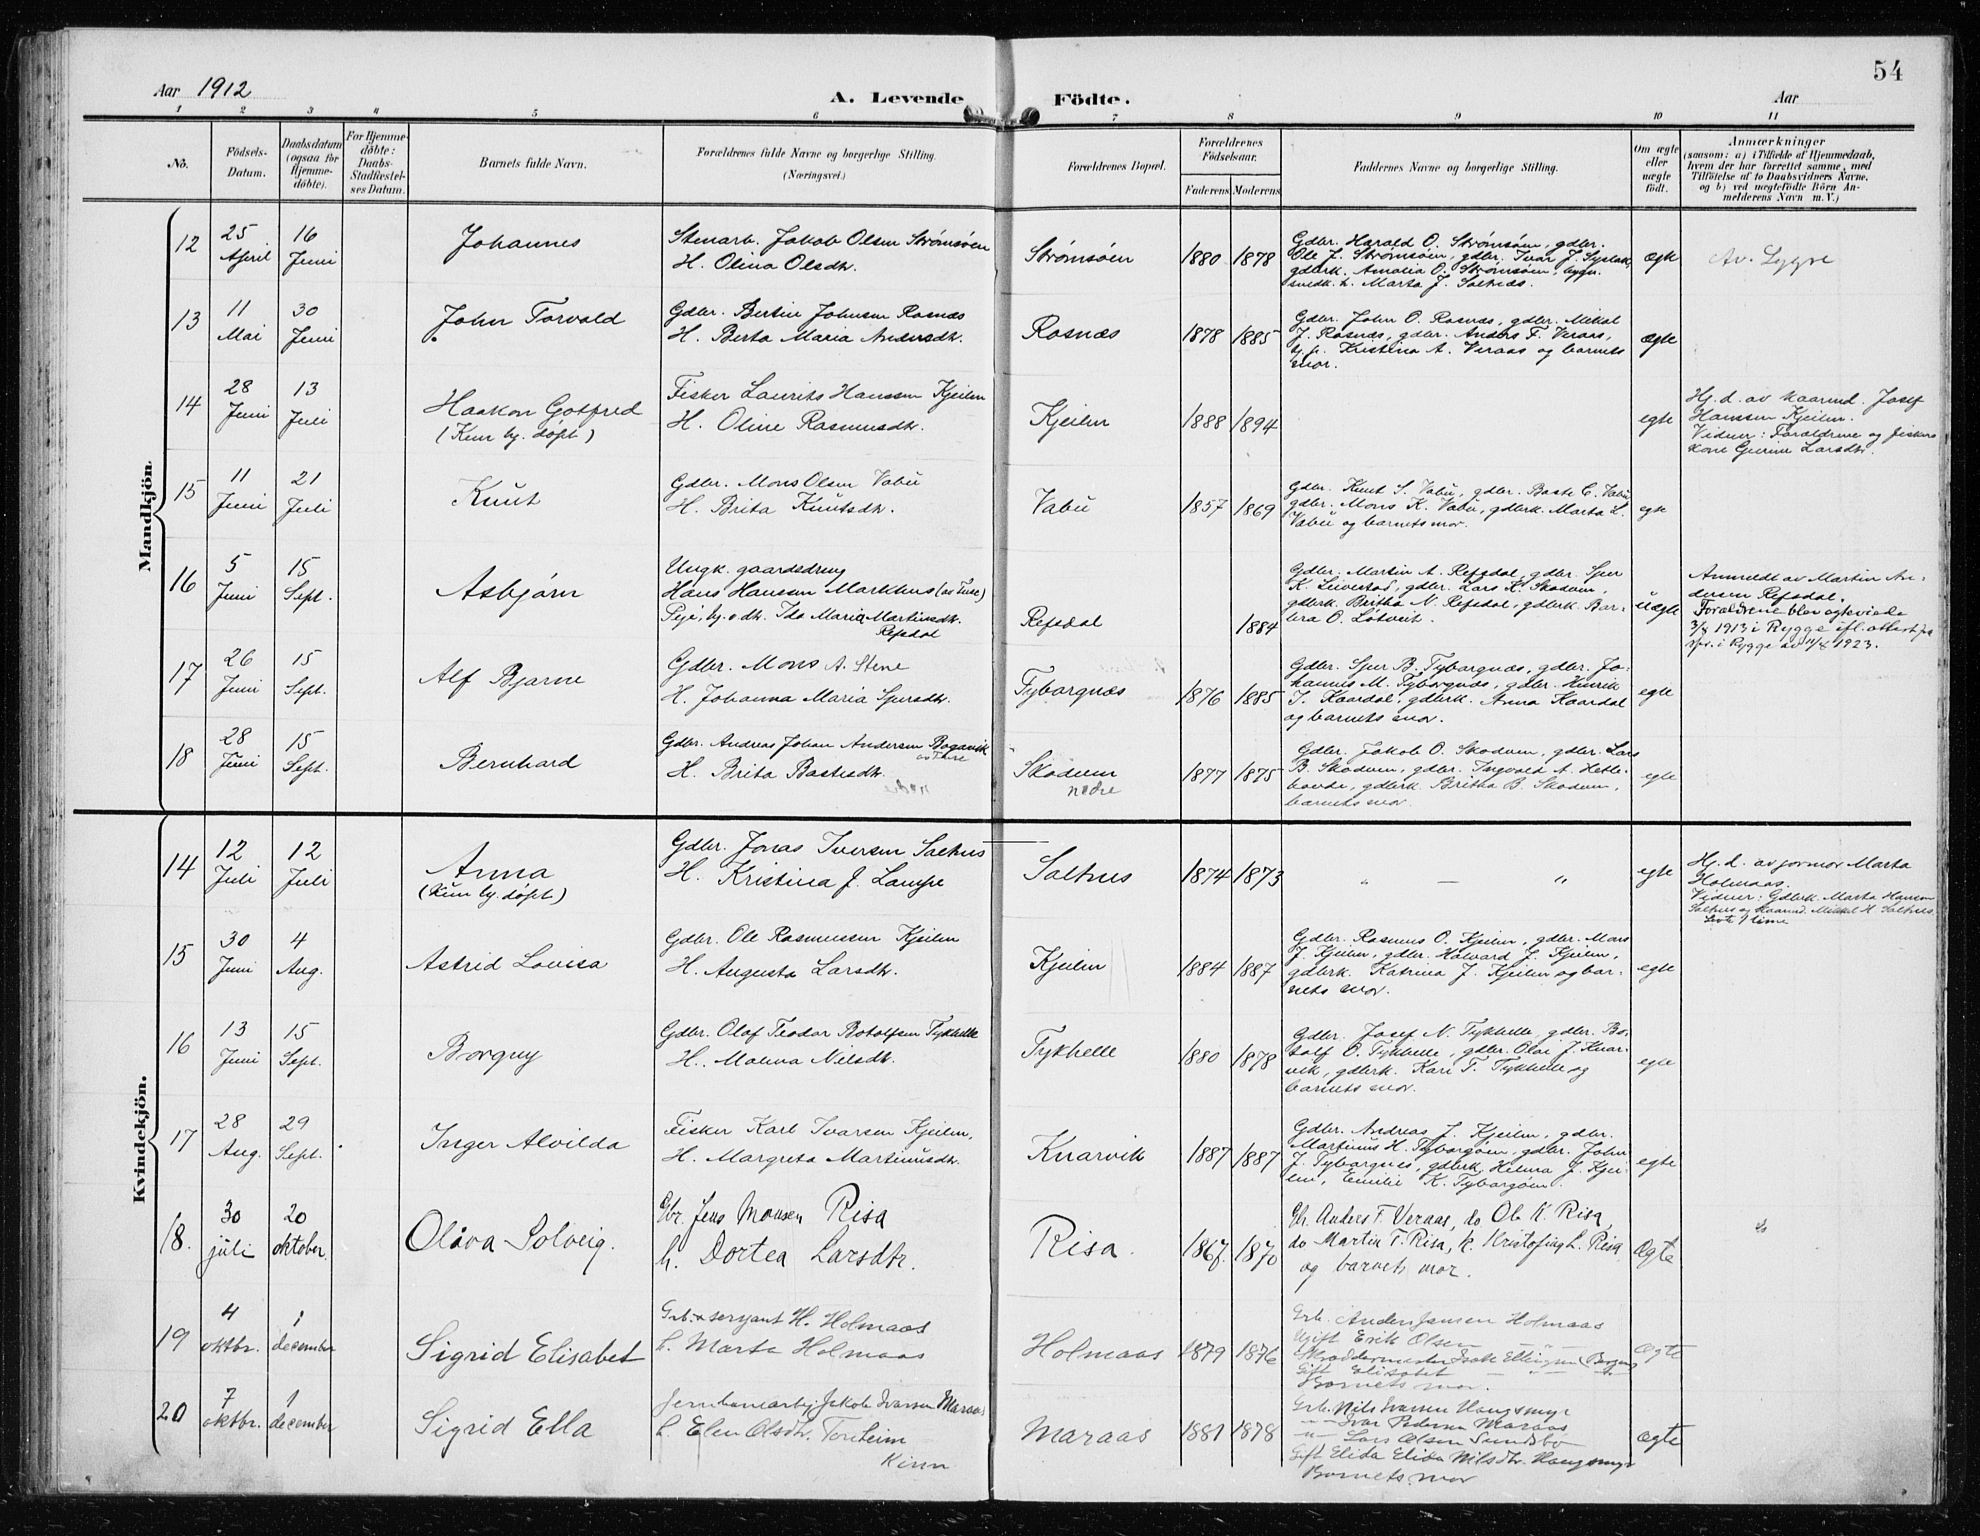 Aar 1912
A. Levende Födte.
Aar
54
1 2 3 4 5 6 7 8 9 10 11
No.
Födsels-
Datum.
Daabsdatum
(ogsaa for
Hjemme-
döbte).
For Hjemme-
döbte:
Daabs-
Stadfæstel-
ses Datum.
Barnets fulde Navn.
Forældrenes fulde Navne og borgerlige Stilling.
(Næringsvei.)
Forældrenes Bopæl.
Forældrenes
Födselsaar.
Faderens Moderens
Faddernes Navne og borgerlige Stilling.
Om ægte
eller
uægte
födt.
Anmærkninger
(saasom: a) i Tilfælde af Hjemmedaab,
hvem der har forrettet samme, med
Tilföielse af to Daabsvidners Navne.
og b) ved uægtefödte Börn An-
melderens Navn m. V.)
Mandkjön.
12
25
April
16
Juni
Johannes
Stenarb. Jakob Olsen Strømsöen
H. Olina Olsdtr.
Strømsöen
1880 1878
Gdbr. Harald O. Strømsöen, gdbr.
Ole J. Strømsöen, gdbr. Ivar J. Systak,
gdbrk. Amalia O. Strømsöen, bygn.
smedk. L. Marta J. Solnæs.
ægte
Av. Lygre
13
11
Mai
30
Juni
John Torvald
Gdbr. Bertin Johnsen Rosnæs
H. Berta Maria Andersdtr.
Rosnæs
1878 1885
Gdbr. John O. Rosnæs, gdbr. Mikal
J. Rosnæs, gdbr. Anders F. Veraas,
tj.p. Kristina A. Veraas og barnets
mor.
ægte
14
28
Juni
13
Juli
Haakon Gotfred
(Kun hj. døpt)
Fisker Laurits Hanssen Kjeilen
H. Oline Rasmusdtr.
Kjeilen
1888 1894
egte
Hj. d. av kaarmd. Josef
Hanssen Kjeilen.
Vidner: Forældrene og fiskers
kone Gurine Larsdtr.
15
11
Juni
21
Juli
Knut
Gdbr. Mons Olsen Vabö
H. Brita Knutsdtr.
Vabö
1857 1869
Gdbr. Knut S. Vabö, gdbr. Baste C. Vabö
gdbr. Mons K. Vabö, gdbrk. Marta L.
Vabö og barnets mor.
egte
16
5
Juni
15
Sept.
Asbjørn
Ungk. gaardsdreng
Hans Hanssen Markhus (av Fure)
Pige, hj. o. dtr. Ida Maria Martinusdtr.
Refsdal
Refsdal
1884
Gdbr. Martin A. Refsdal, gdbr. Sjur
K. Leivestad, gdbr. Lars K. Skodven,
gdbrk. Britha N. Refsdal, gdbrk. Bar-
bra O. Lötveit.
uægte
Anmeldt av Martin An-
dersen Refsdal.
Forældrene blev egteviede
3/8 1913 i Rygge ifl. attest fra
spr. i Rygge av 11/8 1923.
17
26
Juni
15
Sept.
Alf Bjarne
Gdbr. Mons A. Stene
H. Johanna Maria Sjursdtr.
Tyborgnæs
1876 1885
Gdbr. Sjur B. Tyborgnæs, gdbr. Jo-
hannes M. Tyborgnæs, gdbr. Henrik
J. Kaardal, gdbrk. Anna Kaardal
og barnets mor.
egte
18
28
Juni
15
Sept.
Bernhard
Gdbr. Andreas Johan Andersen Bogavik
av Fure
H. Brita Bastesdtr.
Skodven
nedre
1877 1875
Gdbr. Jakob O. Skodven, gdbr. Lars
B. Skodven, gdbr. Ingvald A. Helle-
bovde, gdbrk. Britha B. Skodven,
barnets mor.
egte
Kvindekjön.
14
12
Juli
12
Juli
Anna
(Kun hj. døpt)
Gdbr. Jonas Iversen Solhus
H. Kristina J. Lampe
Solhus
1874 1873
" — "
egte
Hj. d. av jormor Marta
Holmaas.
Vidner: Gdbrk. Marta Hansen
Solhus og kaarmd. Mikkel H. Solhus.
Levt 1 time
15
30
Juni
4
Aug.
Astrid Lovisa
Gdbr. Ole Rasmussen Kjeilen
H. Augusta Larsdtr.
Kjeilen
1884 1887
Gdbr. Rasmus O. Kjeilen, gdbr. Mars
J. Kjeilen, gdbr. Halvard J. Kjeilen,
gdbrk. Katrina J. Kjeilen og bar-
nets mor.
egte
16
13
Juni
15
Sept.
Borguy
Gdbr. Olaf Teodor Botolfsen Tykhelle
H. Malena Nilsdtr.
Tykhelle
1880 1878
Gdbr. Josef N. Tykhelle, gdbr. Bo-
tolf O. Tykhelle, gdbr. Olai J. Knar-
vik, gdbrk. Kari T. Tykhelle og
barnets mor.
egte
17
28
Aug.
29
Sept.
Inger Alvilda
Fisker Karl Ivarsen Kjeilen,
H. Margreta Martinusdtr.
Knarvik
1887 1887
Gdbr. Andreas J. Kjeilen, gdbr.
Martinus H. Tyborgöen, gdbr. John
J. Tyborgnes, gdbrk. Helena J. Kjei-
len, Emilie K. Tyborgöen.
egte
18.
30
juli
20
oktober.
Olåva Solveig.
Gbr. Jens Monsen Risa
h. Dortea Larsdtr.
Risa.
1867. 1870
Gb. Anders F. Veraas, do Ole K. Risa,
do Martin T. Risa, k. Kristofina L. Risa
og barnets mor.
Ægte
19
4
oktbr.
1
december
Sigrid Elisabet
Grb. & serjant H. Holmaas
h. Marta Holmaas
Holmaas
1879 1876
Grb. Anders Jansen Holmaas
Ugift Erik Olsen
Skreddermester Isak Ellingsen (Bergen)
Gift Elisabet — " —
Barnets mor.
ægte
20
7
oktbr.
1
december
Sigrid Ella
Jernbanearb. Jakob Ivarsen Maraas
h. Elen Olsdtr. Torsheim
Kinn
Maraas
1881 1878
Grb. Nils Ivarsen Haugsmyr
—"— Ivar Pedersen Maraas
—"— Lars Olsen Sundsbö
Gift Elida Elida Nilsdtr. Haugsmyr
Barnets mor
ægte